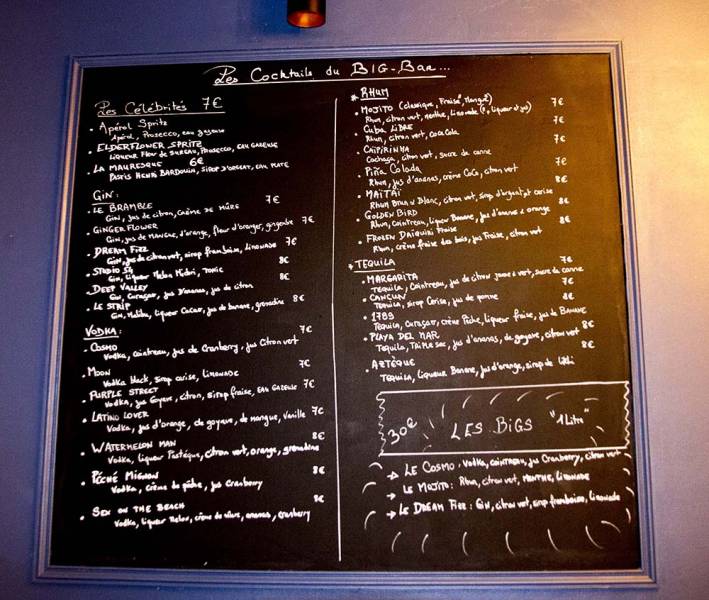 Les Cocktails du BIG-BAR...
Les Célébrités 7€
• Apérol Spritz
Apérol, Prosecco, eau gazeuse
• ELDERFLOWER SPRITZ
Liqueur Fleur de SUREAU, PROSECCO, EAU GAZEUSE
• LA MAURESQUE 6€
Pastis HENRI BARDOUIN, SIROP D'ORGEAT, EAU PLATE
GIN:
• LE BRAMBLE 7€
GIN, jus de citron, CRÈME DE MÛRE
• GINGER FLOWER 7€
Gin, jus de MANGUE, d'orange, fleur d'oranger, gingembre
• DREAM FIZZ 7€
Gin, jus de citron vert, sirop framboise, LIMONADE
• STUDIO 54 8€
Gin, liqueur Melon Midori, Tonic
• DEEP VALLEY 8€
Gin, Curaçao, jus D'ananas, jus de citron
• LE STRIP 8€
Gin, Malibu, liqueur Cacao, jus de banane, grenadine
VODKA:
• COSMO 7€
Vodka, cointreau, jus de Cranberry, jus Citron vert
• MOON 7€
Vodka black, sirop cerise, LIMONADE
• PURPLE STREET 7€
Vodka, jus Goyave, citron, sirop fraise, EAU GAZEUSE
• LATINO LOVER 7€
Vodka, jus d'orange, de goyave, de mangue, Vanille
• WATERMELON MAN 8€
Vodka, Liqueur Pastèque, citron vert, orange, grenadine
• PÊCHÉ MIGNON 8€
Vodka, crème de pêche, jus Cranberry
• SEX ON THE BEACH 8€
Vodka, liqueur Melon, crème de mûre, ananas, cranberry
* RHUM
• MOJITO (classique, Fraise, Mangue) 7€
Rhum, citron vert, menthe, limonade
• Cuba LIBRE 7€
Rhum, citron vert, coca cola
• CAIPIRINHA 7€
Cachaça, citron vert, sucre de canne
• Piña Colada 7€
Rhum, jus d'ananas, crème CoCo, citron vert
• MAÏTAÏ 8€
Rhum Brun & Blanc, citron vert, sirop d'orgeat, cerise
• GOLDEN BIRD 8€
Rhum, Cointreau, liqueur Banane, jus d'ananas & orange
• FROZEN DAIQUIRI Fraise 8€
Rhum, crème fraise des bois, jus Fraise, citron vert
* TEQUILA
• MARGARITA 7€
TEQUILA, Cointreau, jus de citron jaune & vert, sucre de canne
• CANCUN 7€
Tequila, sirop Cerise, jus de pomme
• 1789 8€
Tequila, Curaçao, crème Pêche, liqueur fraise, jus de BANANE
• PLAYA DEL MAR 8€
Tequila, Triple sec, jus d'ananas, de goyave, citron vert
• AZTÈQUE 8€
Tequila, Liqueur Banane, jus d'orange, sirop de
30€ LES BIGS "1 Litre"
→ LE COSMO: Vodka, cointreau, jus Cranberry, citron vert
→ LE MOJITO: Rhum, citron vert, MENTHE, LIMONADE
→ LE DREAM FIZZ: GIN, citron vert, sirop framboise, limonade